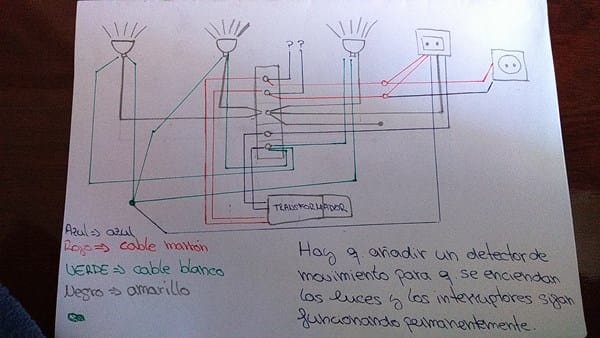 ? ?
TRANSFORMADOR
Azul => azul
Rojo => cable marrón
VERDE => cable blanco
Negro => amarillo
Hay q. añadir un detector de
movimiento para q. se enciendan
las luces y los interruptores sigan
funcionando permanentemente.